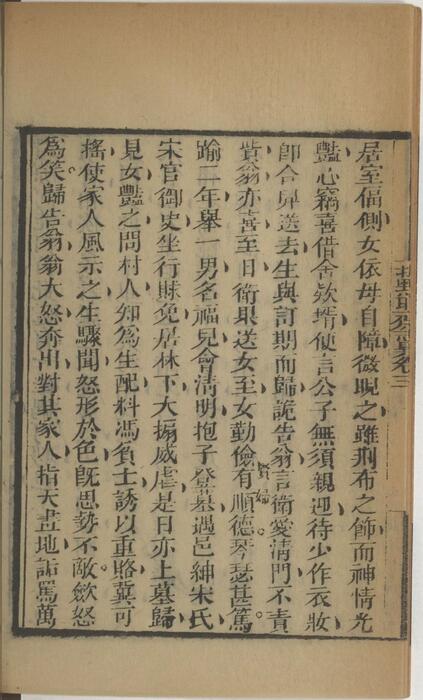 居室偪側女依母自障微睨之雖荊布之飾而神情光
豔心竊喜借舍欵壻便言公子無須親迎待少作衣妝
卽合舁送去生與訂期而歸詭告翁言衛愛清門不責
貲翁亦喜至日衛果送女至女勤儉有順德。琴瑟甚篤。
賢婦
踰二年舉一男名福兒會清明抱子登墓遇邑紳宋氏
宋官御史坐行賕免居林下大搧威虐是日亦上墓歸
見女豔之問村人知爲生配料馮貧士誘以重賂冀可
搖使家人風示之生驟聞怒形於色旣思勢不敵。斂怒
爲笑。歸告翁翁大怒奔出對其家人指天畫地詬罵萬
卷三